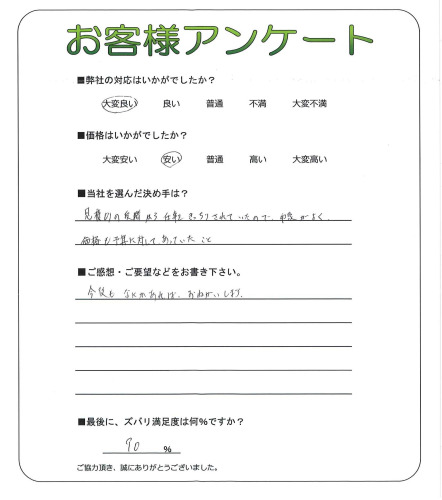 お客様アンケート
■弊社の対応はいかがでしたか？
大変良い 良い 普通 不満 大変不満
■価格はいかがでしたか？
大変安い 安い 普通 高い 大変高い
■当社を選んだ決め手は？
見積りの段階から仕事がきっちりされていたので、印象がよく、
価格も予算に対してあっていたこと
■ご感想・ご要望などをお書き下さい。
今後もなにかあれば、おねがいします。
■最後に、ズバリ満足度は何%ですか？
90 %
ご協力頂き、誠にありがとうございました。